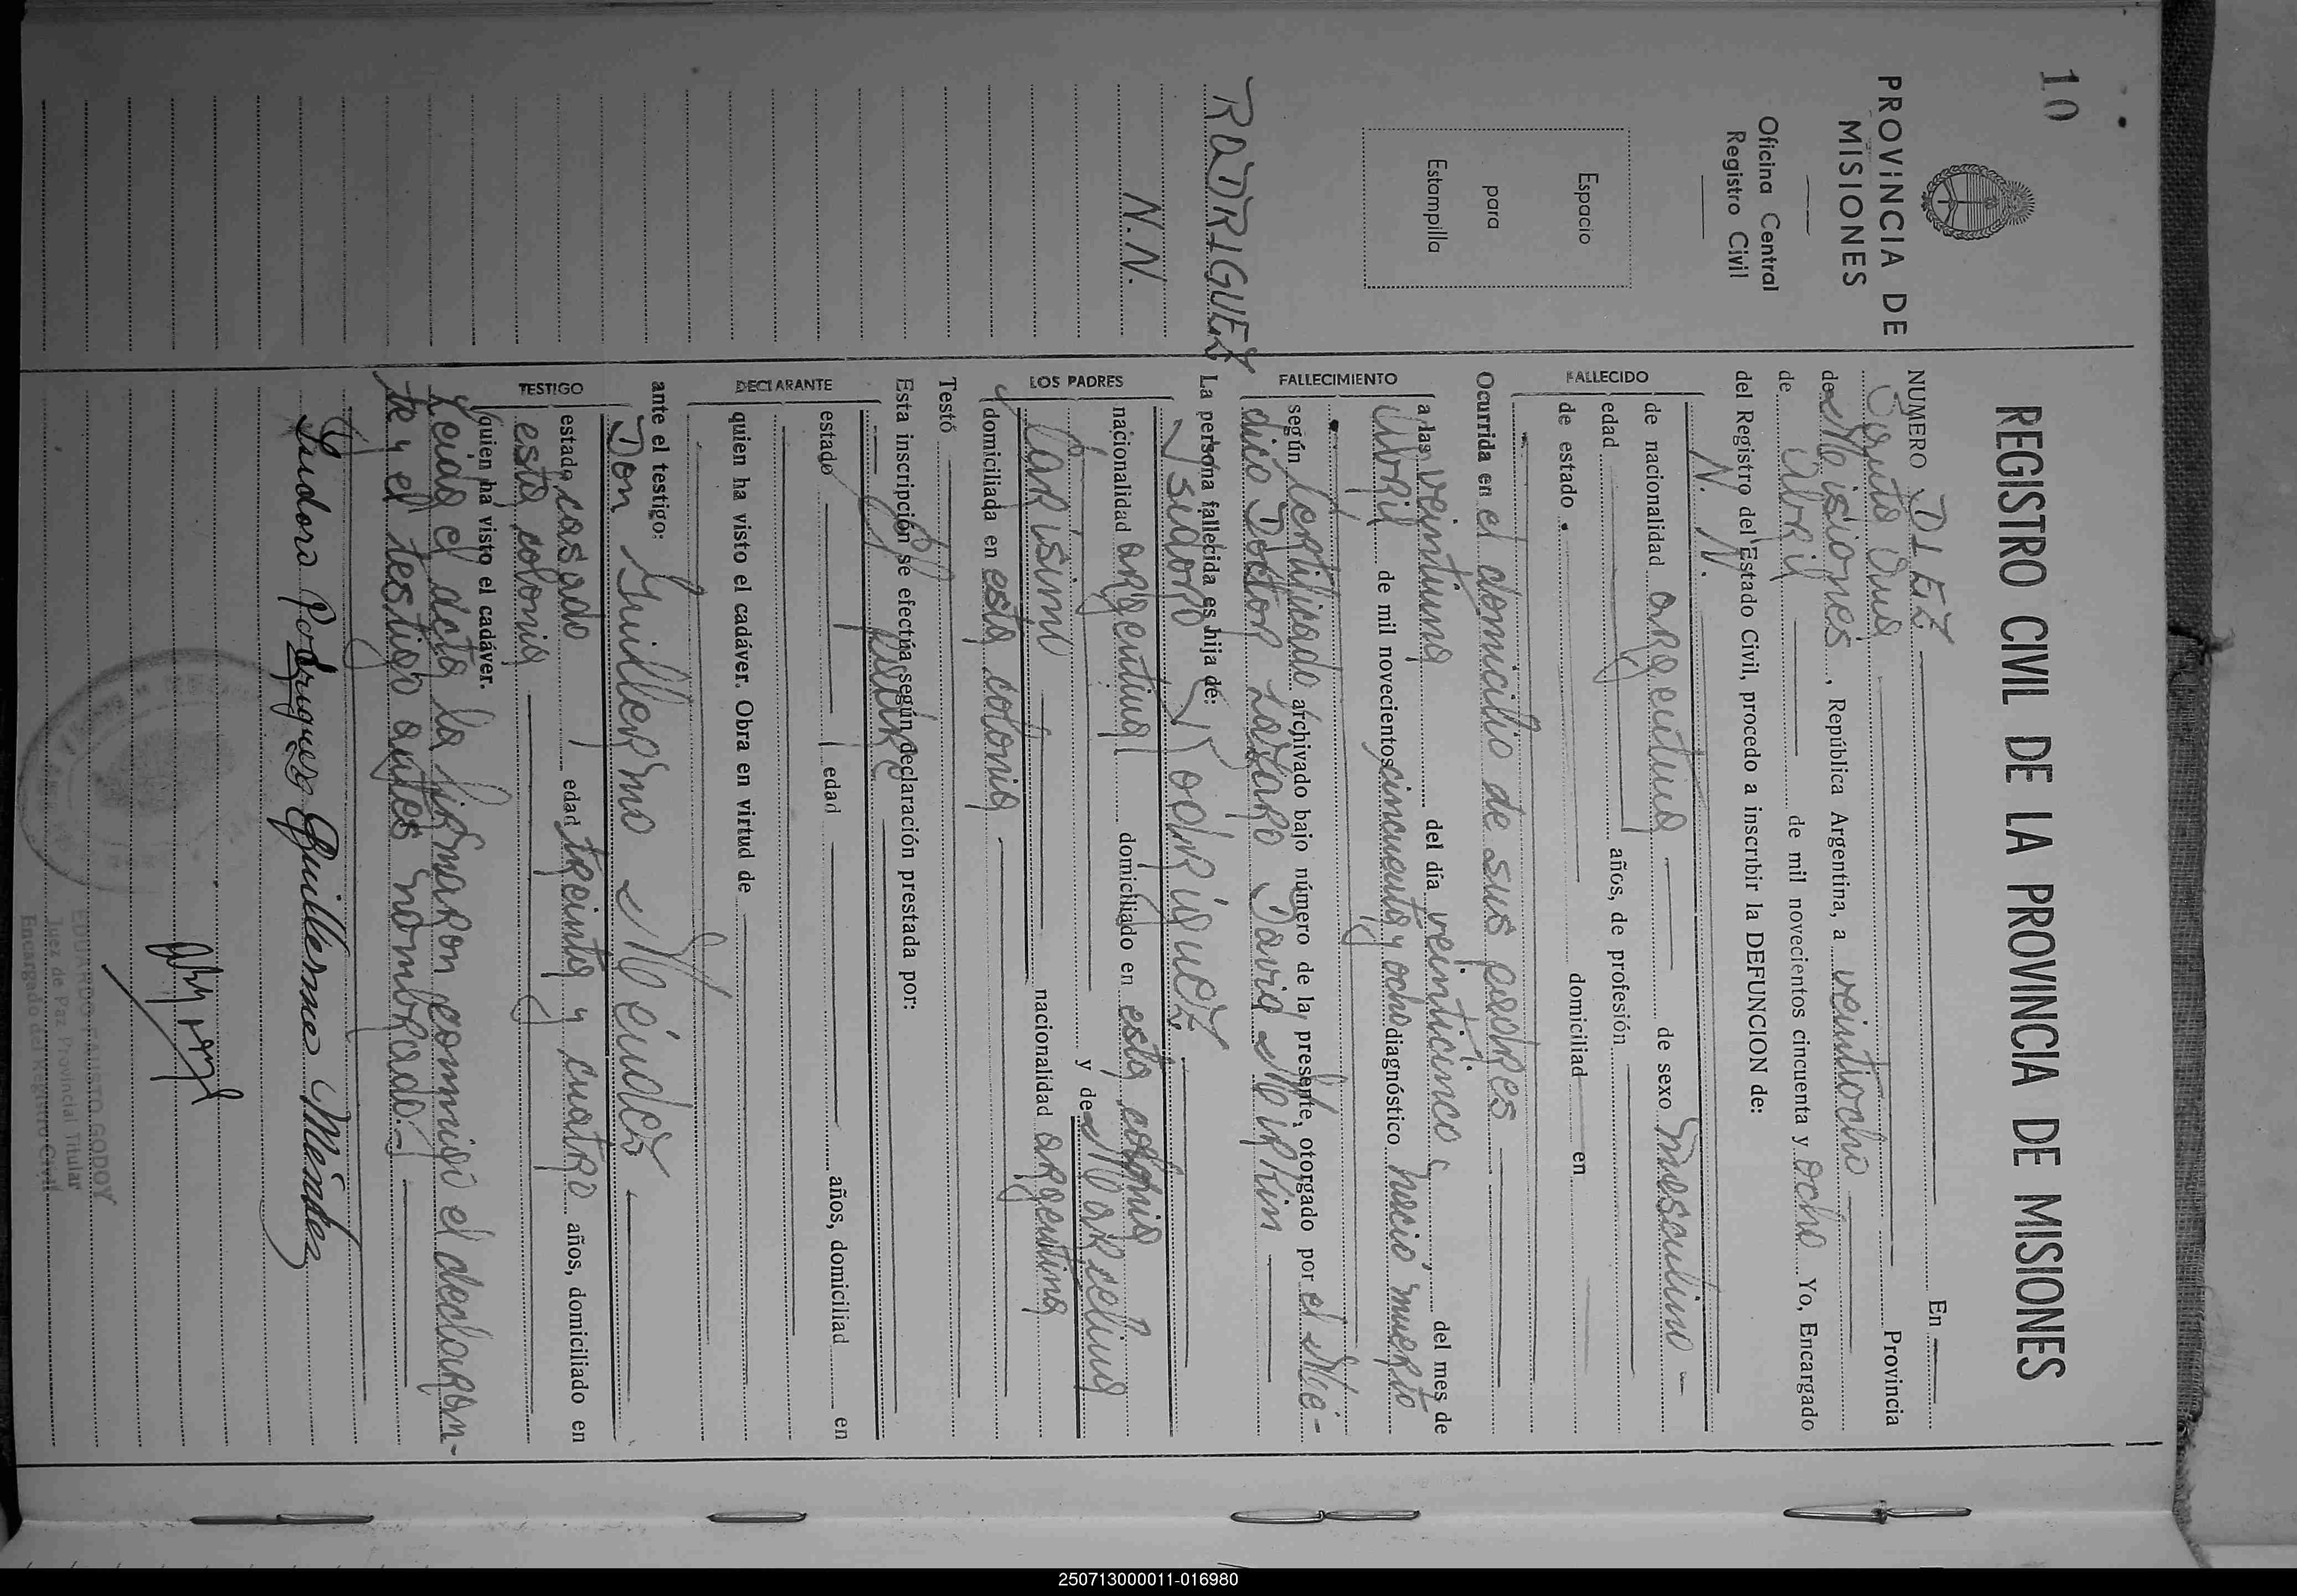 10
PROVINCIA DE
MISIONES
Oficina Central
Registro Civil
Espacio
para
Estampilla
RODRIGUEZ
N.N.
REGISTRO CIVIL DE LA PROVINCIA DE MISIONES
NUMERO DIEZ En
Santa Ana Provincia
de Misiones, República Argentina, a veintiocho
de Abril de mil novecientos cincuenta y Ocho Yo, Encargado
del Registro del Estado Civil, procedo a inscribir la DEFUNCION de:
FALLECIDO
N. N.
de nacionalidad argentina de sexo masculino
edad años, de profesión
de estado domiciliad en
Ocurrida en el domicilio de sus padres
FALLECIMIENTO
a las veintiuna del día veinticinco del mes de
Abril de mil novecientos cincuenta y ocho diagnóstico nació muerto
según certificado archivado bajo número de la presente, otorgado por el Mé-
dico Doctor Lázaro David
La persona fallecida es hija de:
LOS PADRES
Isidoro Rodríguez
nacionalidad argentina domiciliado en esta colonia
y de Marcelina
nacionalidad argentina
domiciliada en esta colonia
Testó
Esta inscripción se efectúa según declaración prestada por:
DECLARANTE
El padre
estado edad años, domiciliad en
quien ha visto el cadáver. Obra en virtud de
ante el testigo:
TESTIGO
Don Guillermo Méndez
estado casado edad treinta y cuatro años, domiciliado en
esta colonia
quien ha visto el cadáver.
Leida el acta la firmaron conmigo el declaran-
te y el testigo antes nombrado.-
Isidoro Rodriguez Guillermo Méndez
EDUARDO FAUSTO GODOY
Juez de Paz Provincial Titular
Encargado del Registro Civil
250713000011-016980